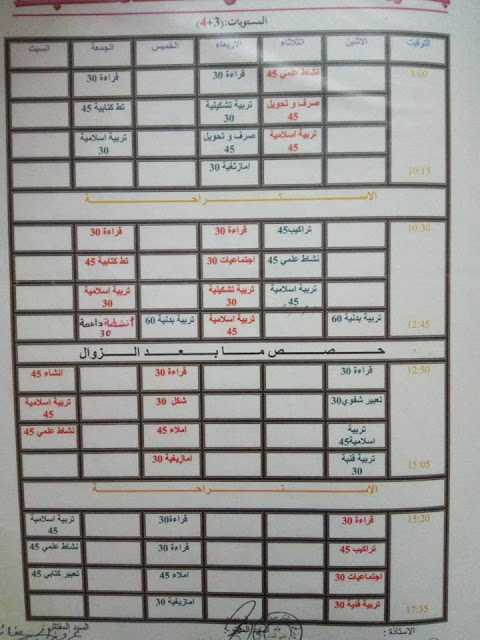 المستويات:(3+4)
التوقيت الاثنين الثلاثاء الاربعاء الخميس الجمعة السبت
9:00 نشاط علمي 45 قراءة 30 قراءة 30
صرف و تحويل 45 تربية تشكيلية 30 تط كتابية 45
تربية اسلامية 45 صرف و تحويل 45 تربية اسلامية 30
10:15 امازغية 30
الاستراحة
10:30 تراكيب45 قراءة 30 قراءة 30
نشاط علمي 45 اجتماعيات 30 تط كتابية 45
تربية اسلامية 45 تربية تشكيلية 30 تربية اسلامية 30
12:45 تربية بدنية 60 تربية اسلامية 45 تربية بدنية 60 أنشطة داعمة 30
حصص ما بعد الزوال
12:50 قراءة 30 قراءة 30 انشاء 45
تعبير شفوي30 شكل 30 تربية اسلامية 45
تربية اسلامية45 املاء 45 نشاط علمي 45
15:05 تربية فنية 30 امازيغية 30
الاستراحة
15:20 قراءة 30 قراءة30 تربية اسلامية 45
تراكيب 45 قراءة 30 نشاط علمي 45
اجتماعيات 30 املاء 45 تعبير كتابي 45
17:35 تربية فنية 30 امازيغية 30
الاستاذة : السيد المفتش